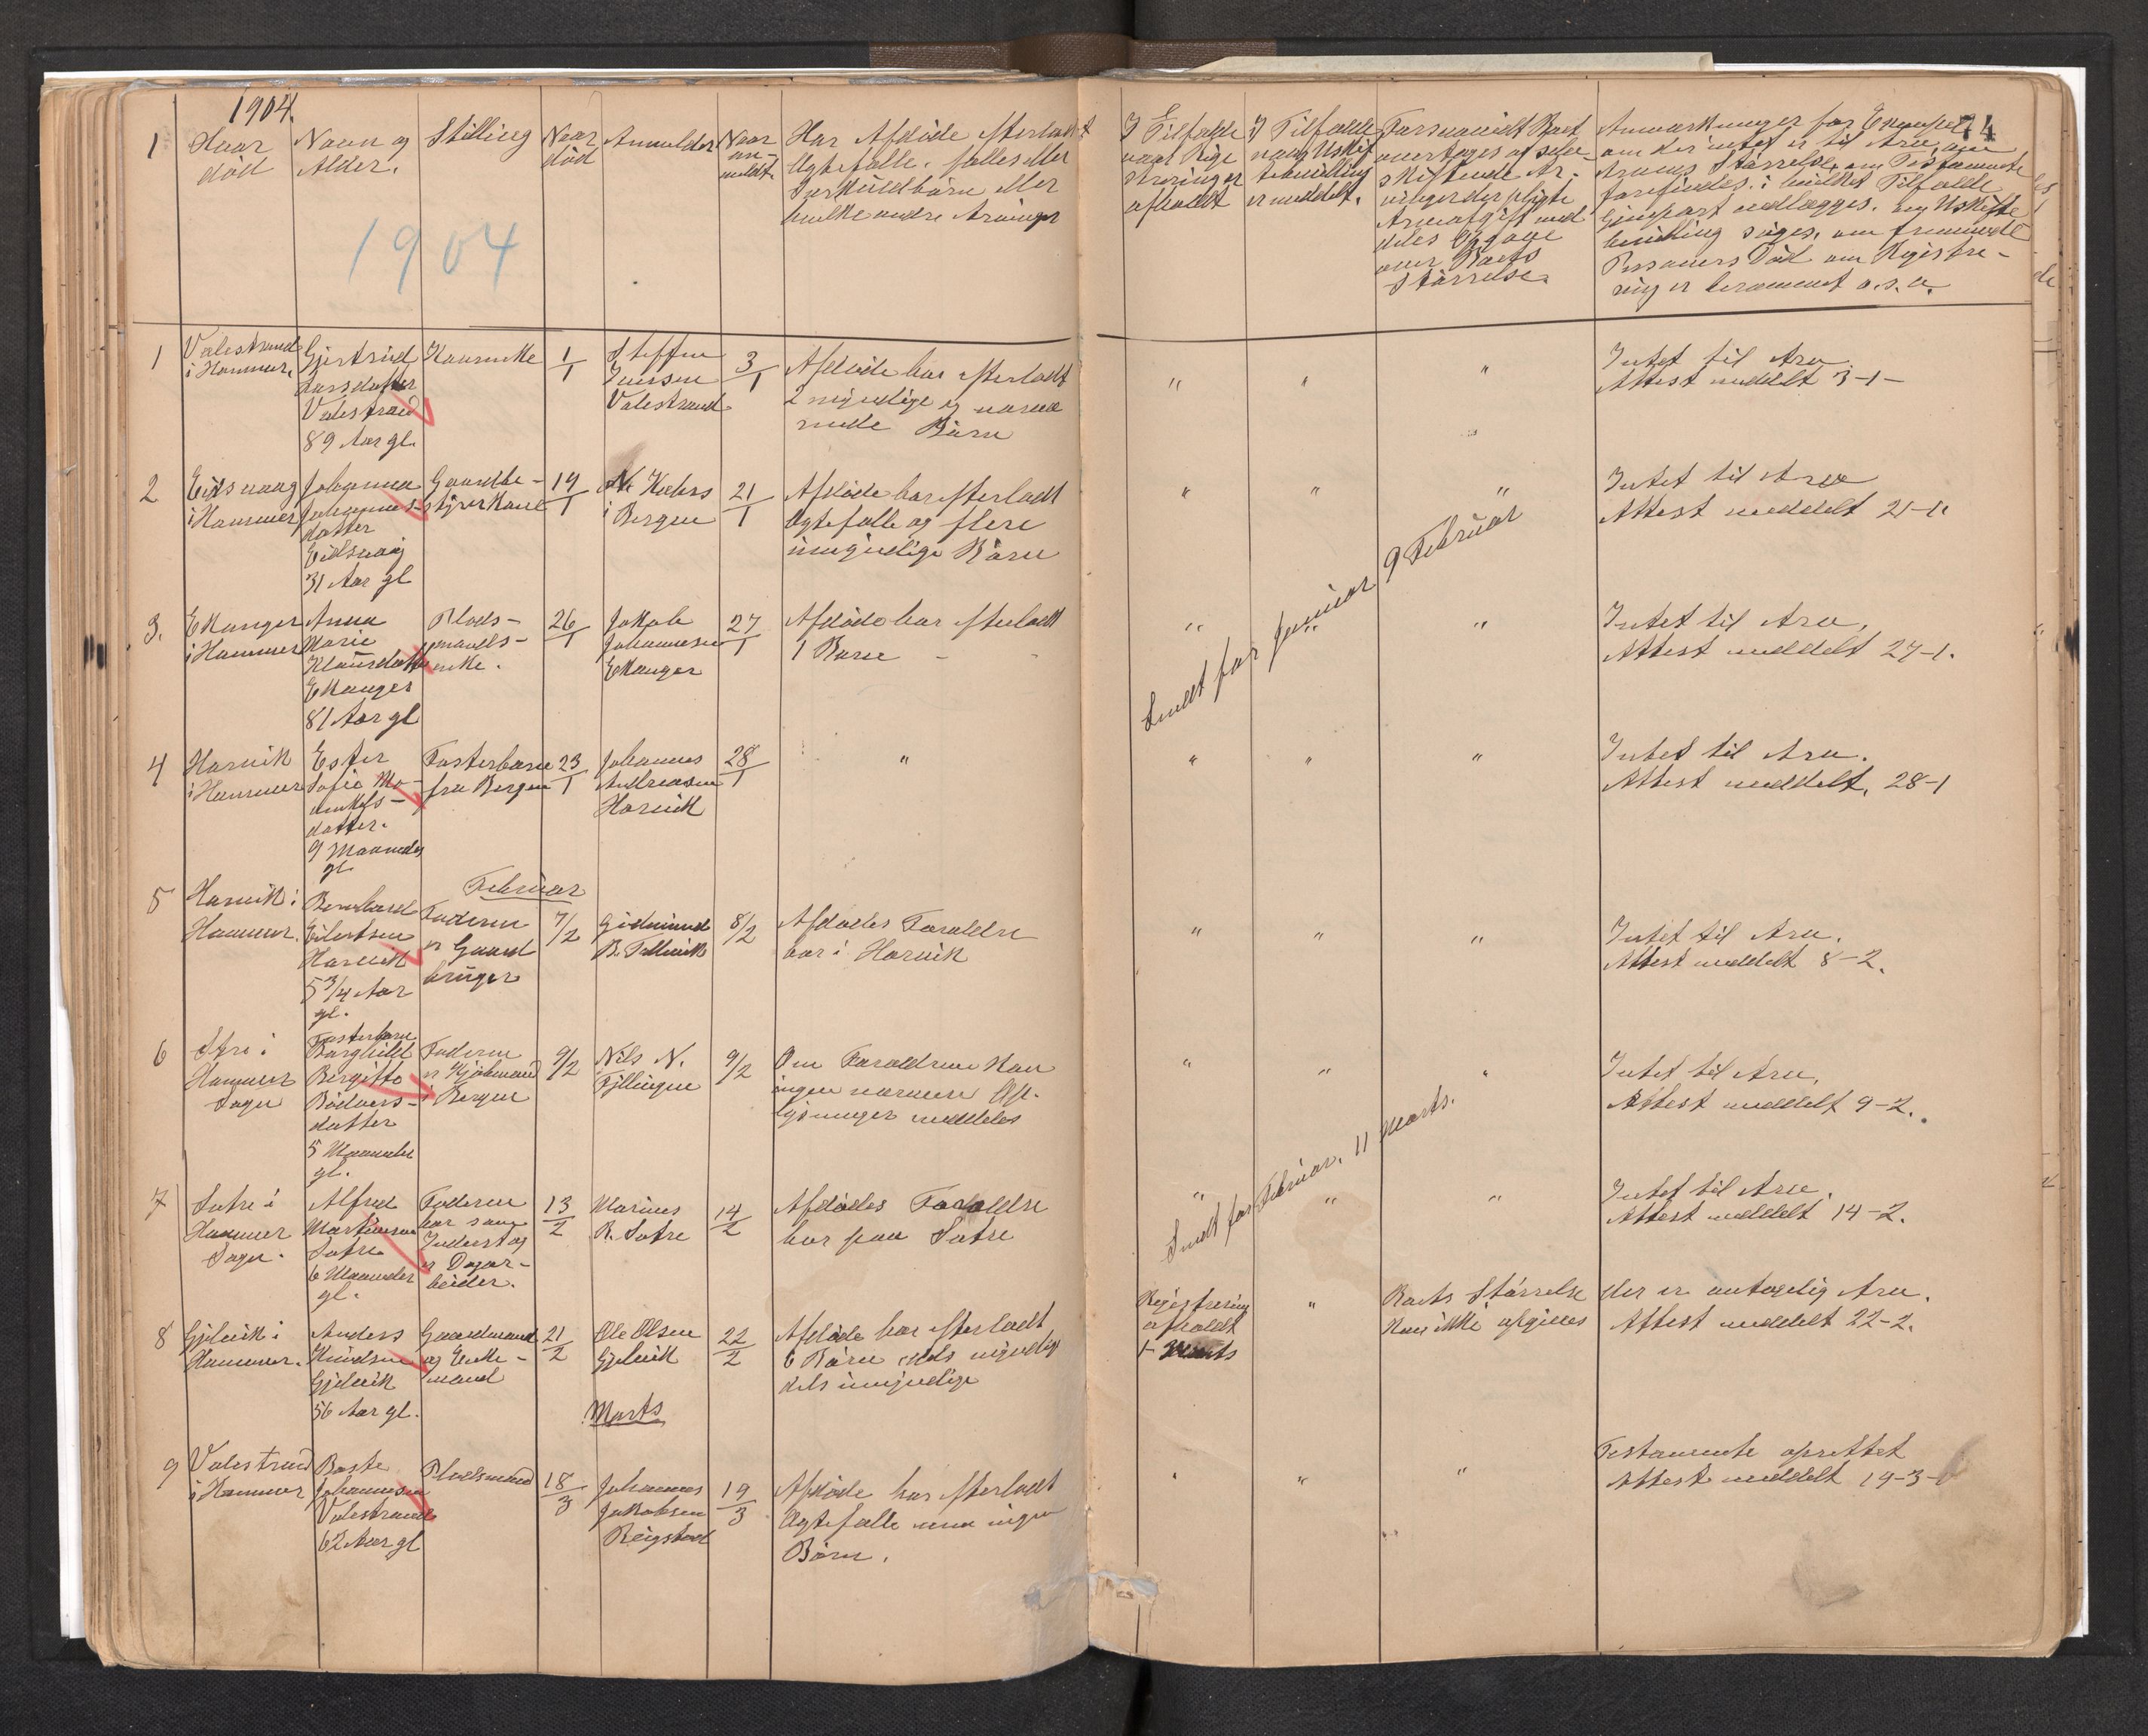 1904.
74
1
Hvor
død
Navn og
Alder.
Stilling
Naar
død
Anmelder
Naar
an-
meldt
Har Afdøde efterladt
Ægtefælle, fælles eller
Særkuldbørn eller
hvilke andre Arvinger
I Tilfælde
naar Regi
strering er
afholdt
I Tilfælde
naar Uskif
tebevilling
er meddelt.
Forsaavidt Boet
overtages af selv-
skiftende Ar-
vinger der pligte
Arveafgift med
deles Opgave
over Boets
Størrelse.
Anmærkninger for Exempel
om der intet er til Arv, om
Arvens Størrelse, om Testamente
forefindes, i hvilket Tilfælde
Gjenpart vedlægges, om Uskifte
bevilling søges, om fremmede
Personers Død, om Registre-
ring er berammet o.s.v.
1904
1
Valestrand
i Hammer.
Gjertrud
Larsdatter
Valestrand
89 Aar gl.
Kaarenke
1/1
Steffen
Iversen
Valestrand
3/1
Afdøde har efterladt
2 myndige og nærvæ
rende Børn
"
"
"
Intet til Arv.
Attest meddelt 3-1-
2
Eidsvaag
i Hammer
Johanna
Johannes-
datter
Eidsvaag
31 Aar gl
Gaardbe-
styrerkone
19/1
i Bergen
21/1
Afdøde har efterladt
Ægtefælle og flere
umyndige Børn
"
"
"
Intet til Arv
Attest meddelt 21-1.
3.
Ekanger
i Hammer
Anna
Marie
Klausdatter
Ekanger
81 Aar gl
Plads-
mands-
enke.
26/1
Jakob
Johannesen
Ekanger
27/1
Afdøde har efterladt
1 Barn
"
"
"
Intet til Arv.
Attest meddelt 27-1.
Sendt for Januar 9 Februar
4
Horvik
i Hammer
Ester
Sofie
datter.
9 Maaneder
gl.
Fosterbarn
fra Bergen
23/1
Johannes
Andreasen
Horvik
28/1
"
"
"
"
Intet til Arv.
Attest meddelt. 28-1
Februar
5
Horvik i
Hammer.
Bernhard
Eilertsen
Horvik
5 3/4 Aar
gl.
Faderen
er Gaard
bruger
7/2
Gudmund
B. Tellevik
8/2
Afdødes Forældre
bor i Horvik
"
"
"
Intet til Arv.
Attest meddelt 8-2.
6
Hammer
Sogn
Fosterbarn
Borghild
Birgitte
Bødvers-
datter
5 Maaneder
gl.
Faderen
er Kjøbmand
i Bergen
9/2
Nils N.
Fyllingen
9/2
Om Forældrene kan
ingen nærmere Op-
lysninger meddeles
"
"
"
Intet til Arv.
Attest meddelt 9-2.
7
Sætre i
Hammer
Sogn.
Alfred
Martinsen
Sætre
6 Maaneder
gl.
Faderen
bor som
Inderst og
er Dagar-
beider.
13/2
Marius
R. Sætre
14/2
Afdødes Forældre
bor paa Sætre
"
"
"
Intet til Arv.
Attest meddelt 14-2.
Sendt for Februar. 11 Marts.
8
Gjelvik i
Hammer.
Anders
Knudsen
Gjelvik
56 Aar gl.
Gaardmand
og Enke-
mand
21/2
Ole Olsen
Gjelvik
22/2
Afdøde har efterladt
6 Børn dels myndige
dels umyndige
Registrering
afholdt
1 Marts
"
Boets Størrelse
kan ikke opgives
der er antagelig Arv.
Attest meddelt 22-2.
Marts
9
Valestrand
i Hammer
Baste
Johannesen
Valestrand
62 Aar gl
Pladsmand
18/3
Johannes
Jakobsen
Reigstad
19/3
Afdøde har efterladt
Ægtefælle men ingen
Børn.
"
"
"
Testamente oprettet
Attest meddelt 19-3-